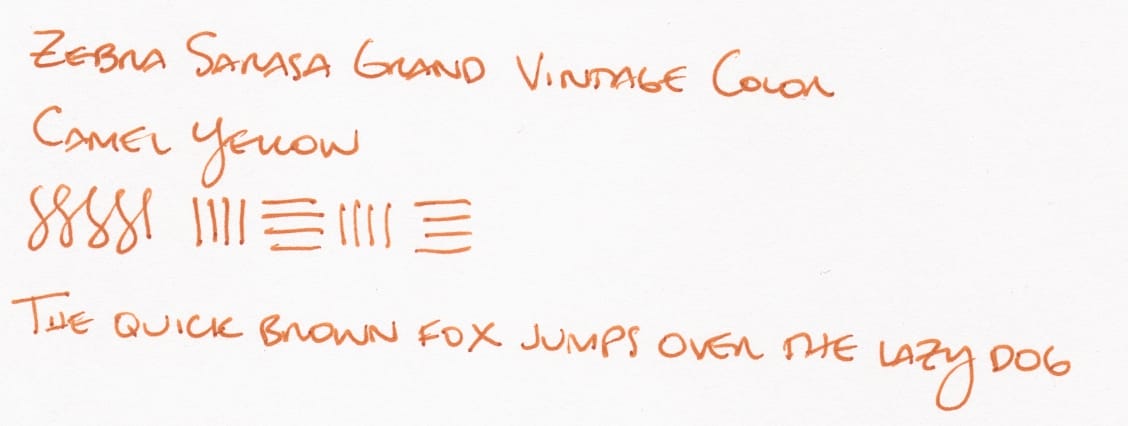 Zebra Sarasa Grand Vintage Color
Camel Yellow
The quick brown fox jumps over the lazy dog